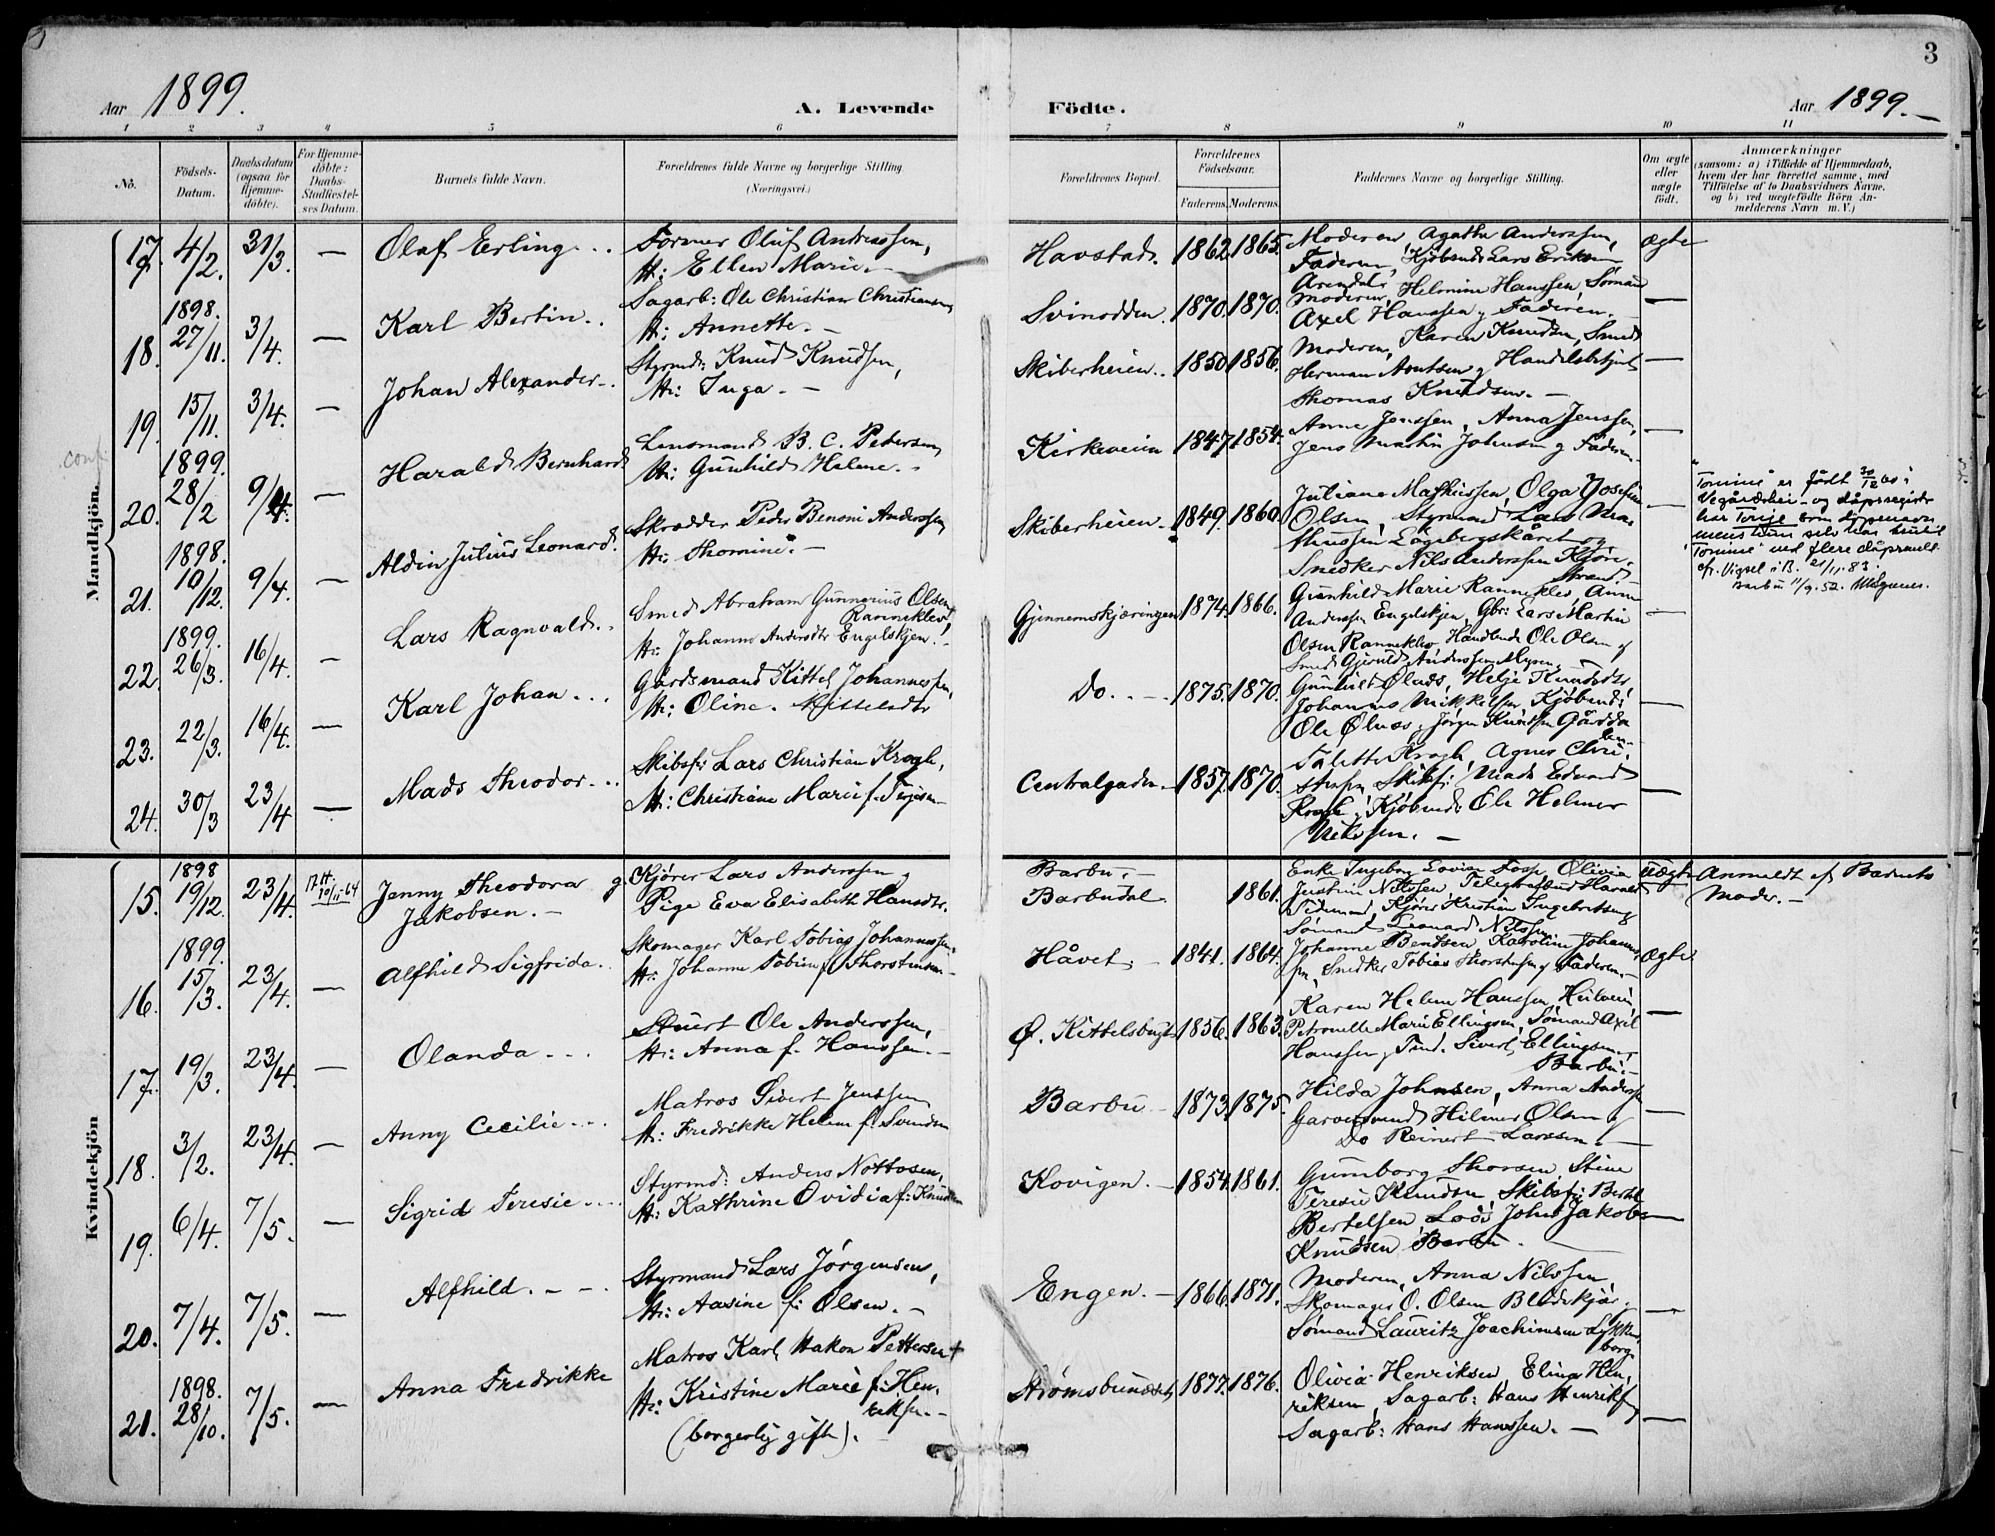 3
Aar 1899.
A. Levende Födte.
Aar 1899.
1 2 3 4 5 6 7 8 9 10 11
No.
Födsels-
Datum.
Daabsdatum
(ogsaa for
Hjemme-
döbte).
For Hjemme-
döbte:
Daabs-
Stadfæstel-
ses Datum.
Barnets fulde Navn.
Forældrenes fulde Navne og borgerlige Stilling
(Næringsvei.)
Forældrenes Bopæl.
Forældrenes
Födselsaar.
Faderens. Moderens.
Faddernes Navne og borgerlige Stilling.
Om ægte
eller
uægte
födt.
Anmærkninger
(saasom: a) i Tilfælde af Hjemmedaab,
hvem der har forrettet samme, med
Tilföielse af to Daabsvidners Navne.
og b) ved uægtefödte Börn An-
melderens Navn m. V.)
Mandkjön.
17. 4/2. 31/3. — Olaf Erling
Former Oluf Andreassen,
H: Ellen Marie. —
Havstad. 1862. 1865.
Moderen, Agathe Anderssen,
Faderen, Kjöbmd: Lars Eriksen
Arendal.
Ægte
1898.
18. 27/11. 3/4. — Karl Bertin
Sagarb: Ole Christian Christiansen
H: Annette. —
Svinodden. 1870. 1870.
Moderen, Helmine Hanssen, Sømand
Axel Hanssen, Faderen. —
19. 15/11. 3/4. — Johan Alexander
Styrmd: Knud Knudsen,
H: Inga. —
Skiberheien. 1850. 1856.
Moderen, Karen Knudsen, Smed
Herman Arntsen, Handelsbetjent
Thomas Knudsen. —
1899.
20. 28/2 9/4. — Harald Bernhard
Lensmand B. C. Pedersen
H: Gunhild Helene. —
Kirkeveien 1847. 1854.
Anne Jenssen, Anna Jenssen,
Jens Martin Johnsen og Faderen
1898.
21. 10/12. 9/4. — Aldin Julius Leonard.
Skrædder Peder Benoni Anderssen
H: Thomine. —
Skiberheien. 1849. 1860.
Juliane Mathiessen, Olga Josefine
Olsen, Styrmand Lars Ma-
thiessen Langbergskåret og
Snedker Nils Anderssen Kjöre-
strand. —
"Tomine" er født 30/12 60 i
Vegårdshei - og dåpsregistr
har Torije som døpenavn
mens hun selv har brukt
"Tomine" ved flere dåpsanl.
cfr. Vigsel i B. 21/11.83.
Barbu 11/9.52.
1899.
22. 26/3. 16/4. — Lars Ragnvald
Smed Abraham Gunnerius Olsen
Ranneklev,
H: Johanne Andersdtr Engelskjøn. —
Gjennemskjæringen 1874. 1866.
Gunhild Marie Ranneklev, Anne
Anderssen Engelskjøn, Gbr: Lars Martin
Olsen Ranneklev, Handlende Ole Olsen og
Smed Gjeruld Anderssen Myren. —
23. 22/3. 16/4. — Karl Johan
Gårdsmand Kittel Johannessen,
H: Oline
Do. 1875. 1870.
Gunhild Ølnæs, Helje Knudsdtr,
Johannes Mikkelsen, Kjöbmd:
Ole Ølnæs, Jørgen Knudsen Gårddalen
24. 30/3 23/4 — Mads Theodor
Skibsf: Lars Christian Krogh,
H: Christiane Marie f. Terjesen
Centralgaden. 1857. 1870.
Talette Krogh, Agnes Chri-
stensen, Skibsf: Mads Edvard
Krogh, Kjöbmd: Ole Helmer
Nilssen. —
Kvindekjön
1898
15. 19/12. 23/4. Jenny Theodora
Jakobsen. —
Kjører Lars Anderssen og
Pige Eva Elisabeth Hansdtr.
Barbu,
Barbudal 1861.
Enke Ingeborg Lovise Fosse, Olivia
Justine Nilssen, Telegrafbud Harald
Tidemand, Kjører Kristian Ingebretsen og
Sømand Leonard Nilssen
Uægte
Anmeldt af Barnets
Moder. —
1899.
16. 15/3. 23/4. — Alfhild Sigfrida.
Skomager Karl Tobias Johannessen,
H: Johanne Tobine f. Thorstensen —
Håvet. 1841. 1864.
Johanne Bendtsen, Karoline Johannes-
sen, Snedker Tobias Thorstensen og Faderen. —
Ægte
17. 19/3. 23/4. — Olanda
Stuert Ole Anderssen,
H: Anna f. Hanssen. —
Ø. Kittelsbugt 1856. 1863.
Karen Helene Hanssen,
Petronelle Marie Ellingsen, Sømand Axel
Hanssen, Tmd. Sivert Ellingsen,
Barbu. —
18. 3/2. 23/4. — Anny Cecilie
Matros Sivert Jenssen
H: Fredrikke Helene f. Svendsen
Barbu 1873. 1875.
Hilda Johnsen, Anna Anderssen
Garversvend Hilmer Olsen og
Do Reinert Larssen. —
19. 6/4. 7/5. — Sigrid Teresie
Styrmd: Anders Nottosen,
H: Kathrine Ovidia f: Knudsen
Kovigen. 1854. 1861.
Gumborg Thorsen, Stine
Teresie Knudsen, Skibsf: Bertel
Bertelsen, Lods John Jakob
Knudsen Barbu.
20. 7/4. 7/5. — Alfhild. —
Styrmand Lars Jørgensen,
H: Aasine f: Olsen. —
Engen. 1866. 1871.
Moderen, Anna Nilssen,
Skomager O. Olsen Blødekjær,
Sømand Lauritz Joachimsen Lykken-
borg
1898.
21. 28/10. 7/5. — Anna Fredrikke
Matros Karl Hakon Pettersen
H: Kristine Marie f: Hen-
riksen. —
(borgerlig gift).
Strømsbunesset 1877. 1876.
Olivia Henriksen, Elina Hen-
riksen, Sagarb: Hans Henriksen,
Sagarb: Hans Hanssen. —